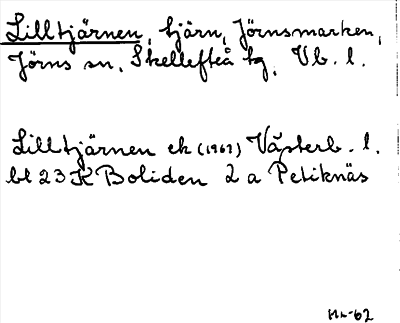 Lilltjärnen, tjärn, Jörnsmarken,
Jörns sn, Skellefteå tg, Vb. l.
Lilltjärnen ek (1961) Västerb. l.
bl 23 K Boliden 2 a Petiknäs